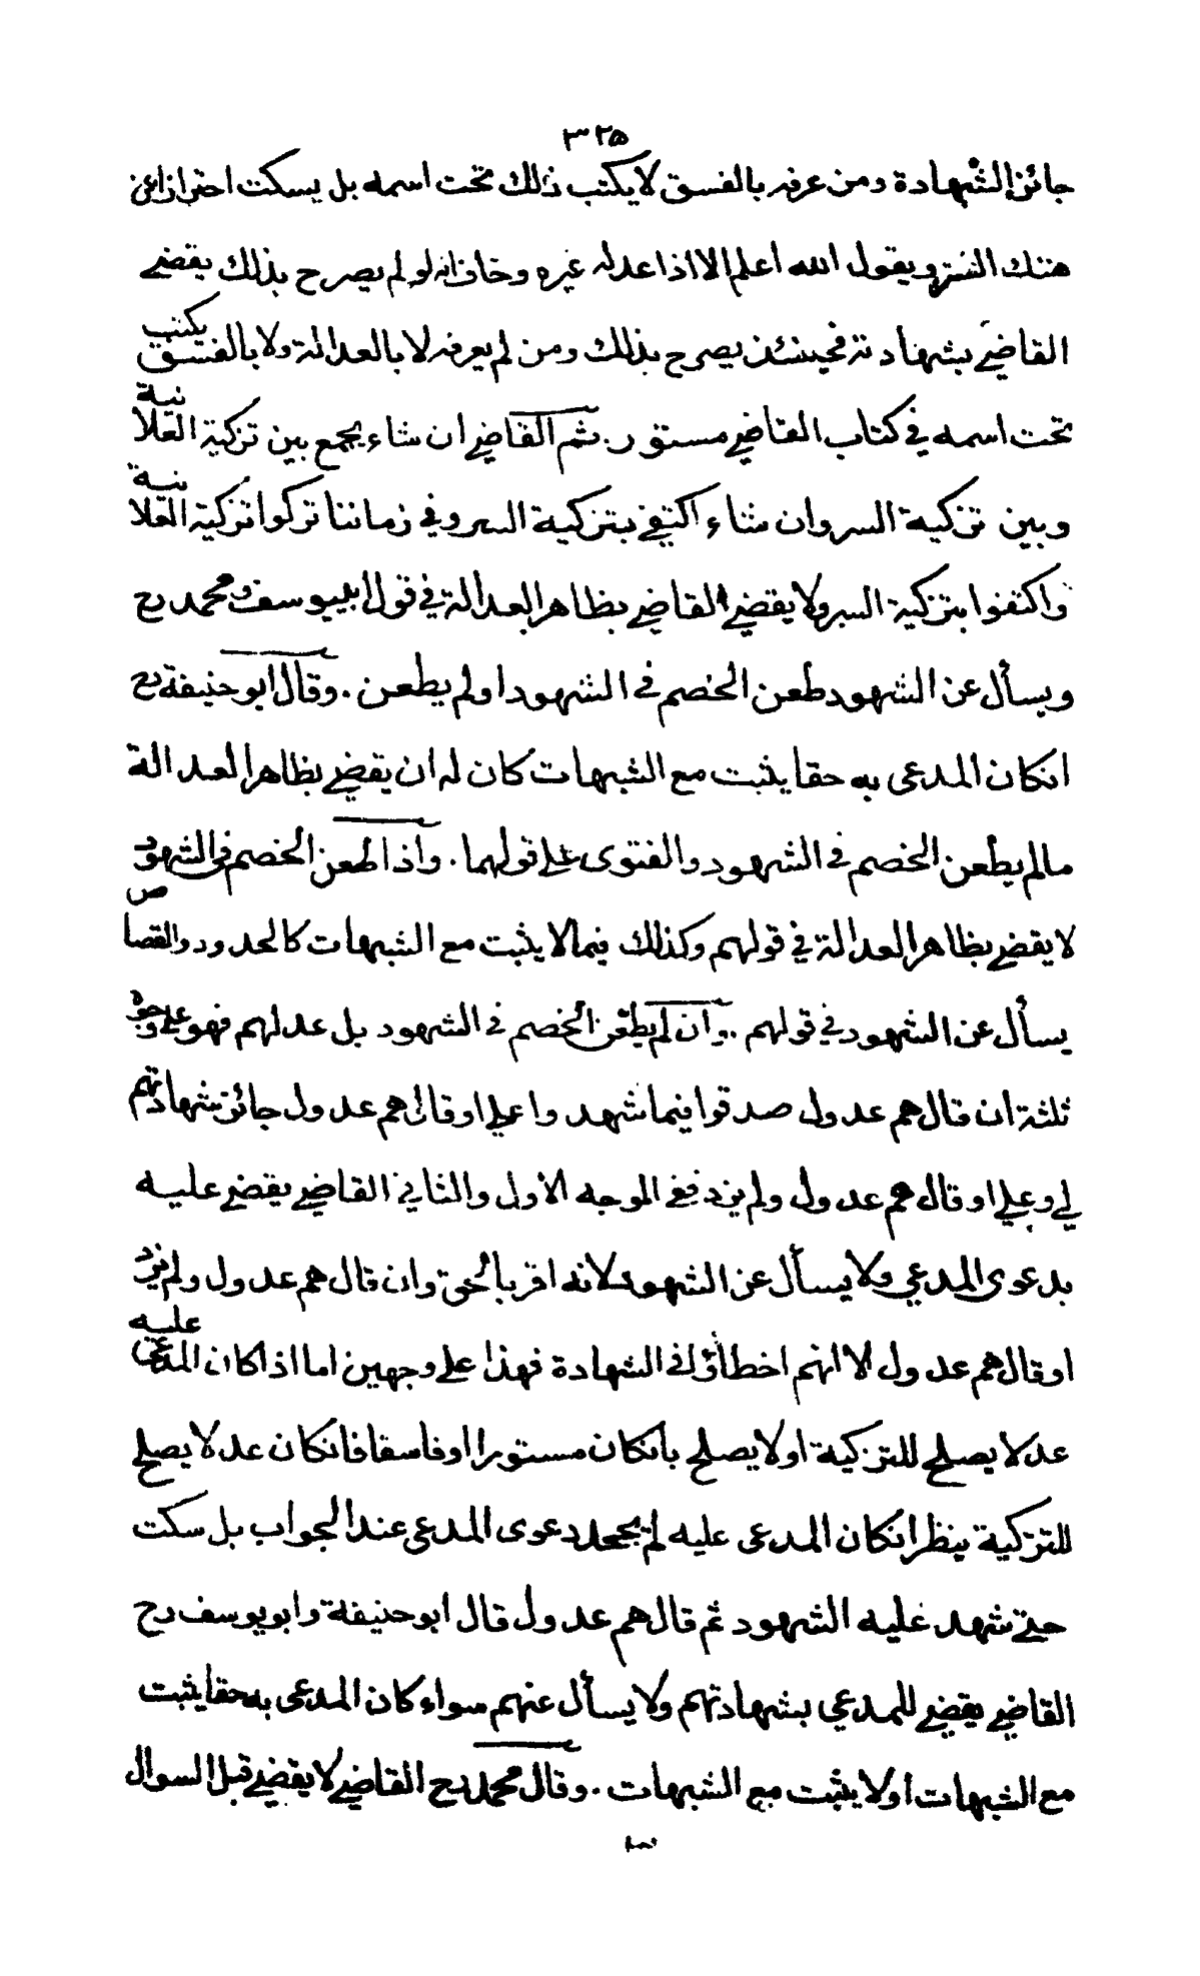 ٣٢٥
جائز الشهادة ومن عرفه بالفسق لا يكتب ذلك تحت اسمه بل يسكت احترازا عن
هتك الستر ويقول الله اعلم الا اذا عدله غيره وخاف انه لو لم يصرح بذلك يقضي
القاضي بشهادته فحينئذ يصرح بذلك ومن لم يعرفه لا بالعدالة ولا بالفسق يكتب
تحت اسمه في كتاب القاضي مستور . ثم القاضي ان شاء يجمع بين تزكية العلانية
وبين تزكية السر وان شاء اكتفى بتزكية السر وفي زماننا تركوا تزكية العلانية
واكتفوا بتزكية السر ولا يقضي القاضي بظاهر العدالة في قول ابي يوسف ومحمد رح
ويسأل عن الشهود طعن الخصم في الشهود او لم يطعن . وقال ابو حنيفة رح
انكان المدعى به حقا يثبت مع الشبهات كان له ان يقضي بظاهر العدالة
مالم يطعن الخصم في الشهود والفتوى على قولهما . واذا طعن الخصم في الشهود
لا يقضي بظاهر العدالة في قولهم وكذلك فيما لا يثبت مع الشبهات كالحدود والقصاص
يسأل عن الشهود في قولهم . وان لم يطعن الخصم في الشهود بل عدلهم فهو على وجوه
ثلثة ان قال هم عدول صدقوا فيما شهدوا علي او قال هم عدول جائز شهادتهم
لي وعلي او قال هم عدول ولم يزد ففي الوجه الاول والثاني القاضي يقضي عليه
بدعوى المدعي ولا يسأل عن الشهود لانه اقر بالحق وان قال هم عدول ولم يزد
او قال هم عدول الا انهم اخطاؤا في الشهادة فهذا على وجهين اما اذا كان المدعى عليه
عدلا يصلح للتزكية او لا يصلح بانكان مستورا او فاسقا فانكان عدلا يصلح
للتزكية ينظر انكان المدعى عليه لم يجحد دعوى المدعي عند الجواب بل سكت
حتى شهد عليه الشهود ثم قال هم عدول قال ابو حنيفة وابو يوسف رح
القاضي يقضي للمدعي بشهادتهم ولا يسأل عنهم سواء كان المدعى به حقا يثبت
مع الشبهات او لا يثبت مع الشبهات . وقال محمد رح القاضي لا يقضي قبل السوال